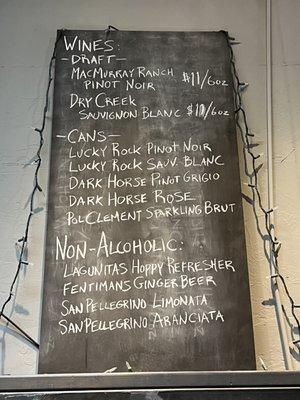 WINES:
-DRAFT-
MACMURRAY RANCH
PINOT NOIR $11/6oz
DRY CREEK
SAUVIGNON BLANC /6oz
-CANS-
LUCKY ROCK PINOT NOIR
LUCKY ROCK SAUV. BLANC
DARK HORSE PINOT GRIGIO
DARK HORSE ROSE
POL CLEMENT SPARKLING BRUT
NON-ALCOHOLIC:
LAGUNITAS HOPPY REFRESHER
FENTIMANS GINGER BEER
SAN PELLEGRINO LIMONATA
SAN PELLEGRINO ARANCIATA